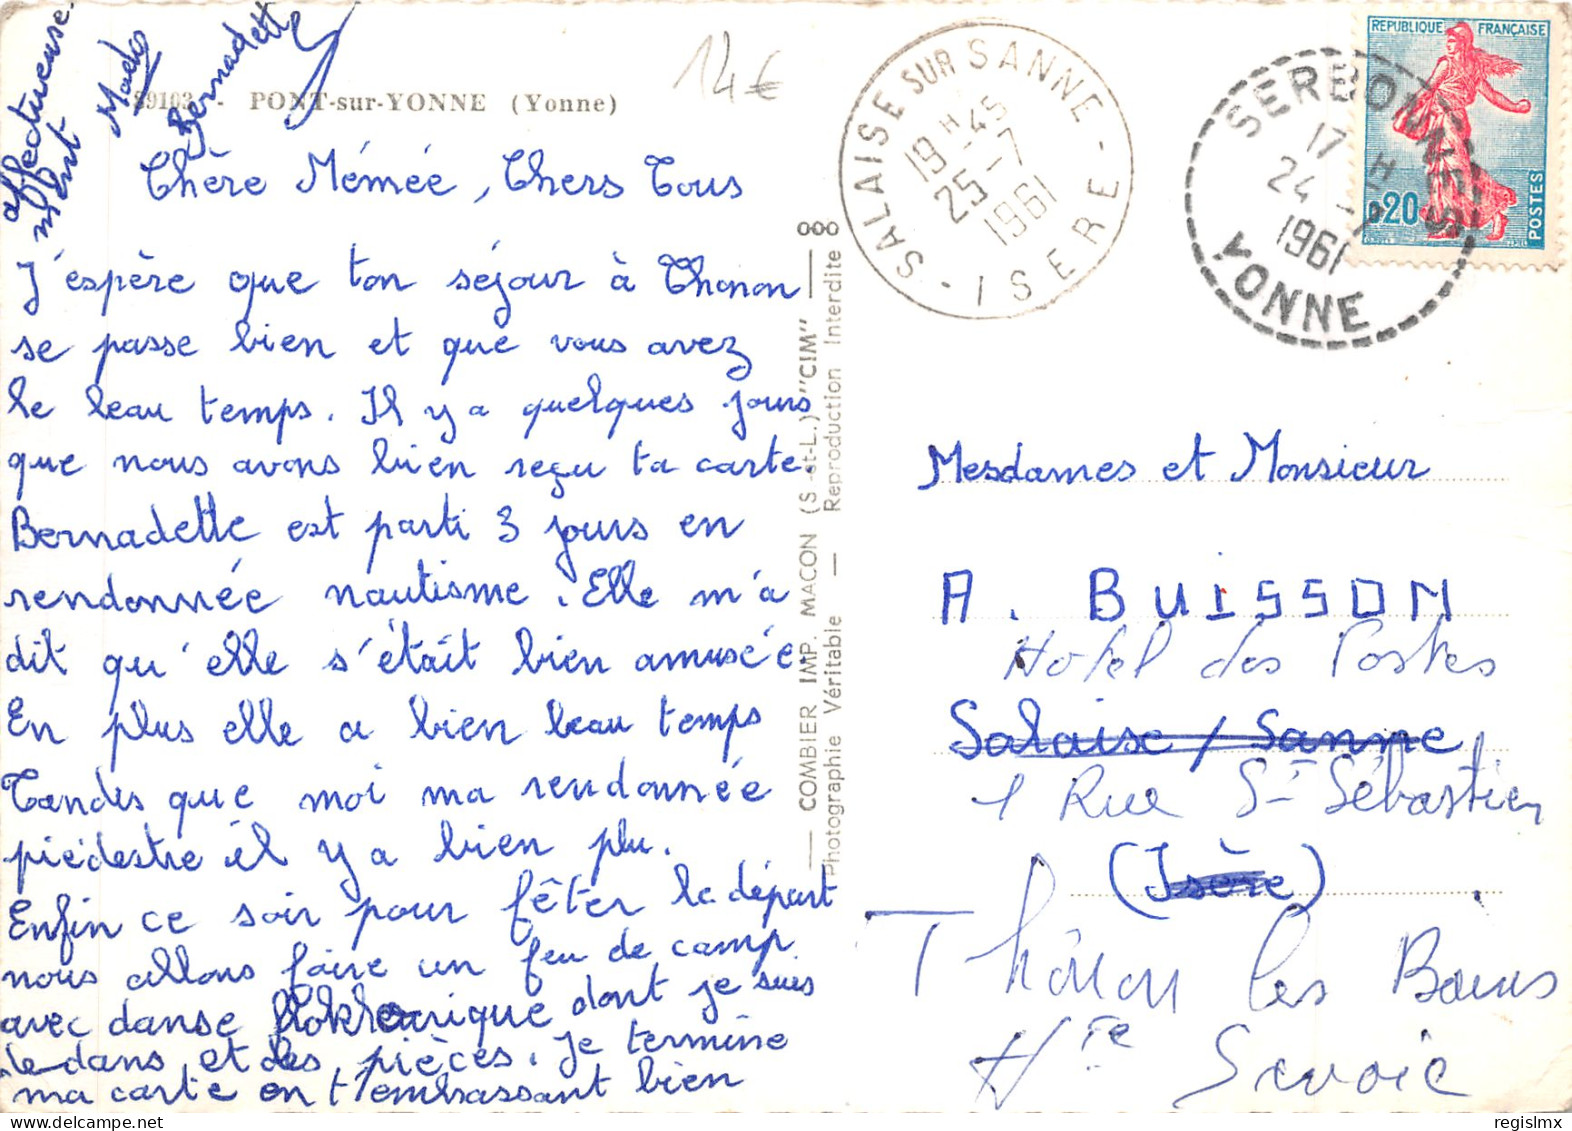 89103 - PONT-sur-YONNE (Yonne)
14€
Chère Mémée, Chers Tous
J'espère que ton séjour à Thonon
se passe bien et que vous avez
le beau temps. Il y a quelques jours
que nous avons bien reçu ta carte.
Bernadette est parti 3 jours en
rendonnée nautisme. Elle m'a
dit qu'elle s'était bien amusée.
En plus elle a bien beau temps
Tandis que moi ma rendonnée
piédestre il y a bien plu.
Enfin ce soir pour fêter le départ
nous allons faire un feu de camp
avec danse folklorique dont je suis
de dans et des pièces. Je termine
ma carte en t'embrassant bien
affectueuse
ment
Mado
Bernadette
COMBIER IMP. MACON (S.-et-L.) "CIM"
Photographie Véritable — Reproduction Interdite
SALAISE SUR SANNE - ISERE -
19 H 45
25 - 7
1961
SERBONNES
17 H
24 - 7
1961
YONNE
REPUBLIQUE FRANÇAISE
0,20
POSTES
Mesdames et Monsieur
A. BUISSON
Hotel des Postes
Salaise / Sanne
1 Rue St Sébastien
(Isère)
Thônon les Bains
Hte Savoie
regislmx